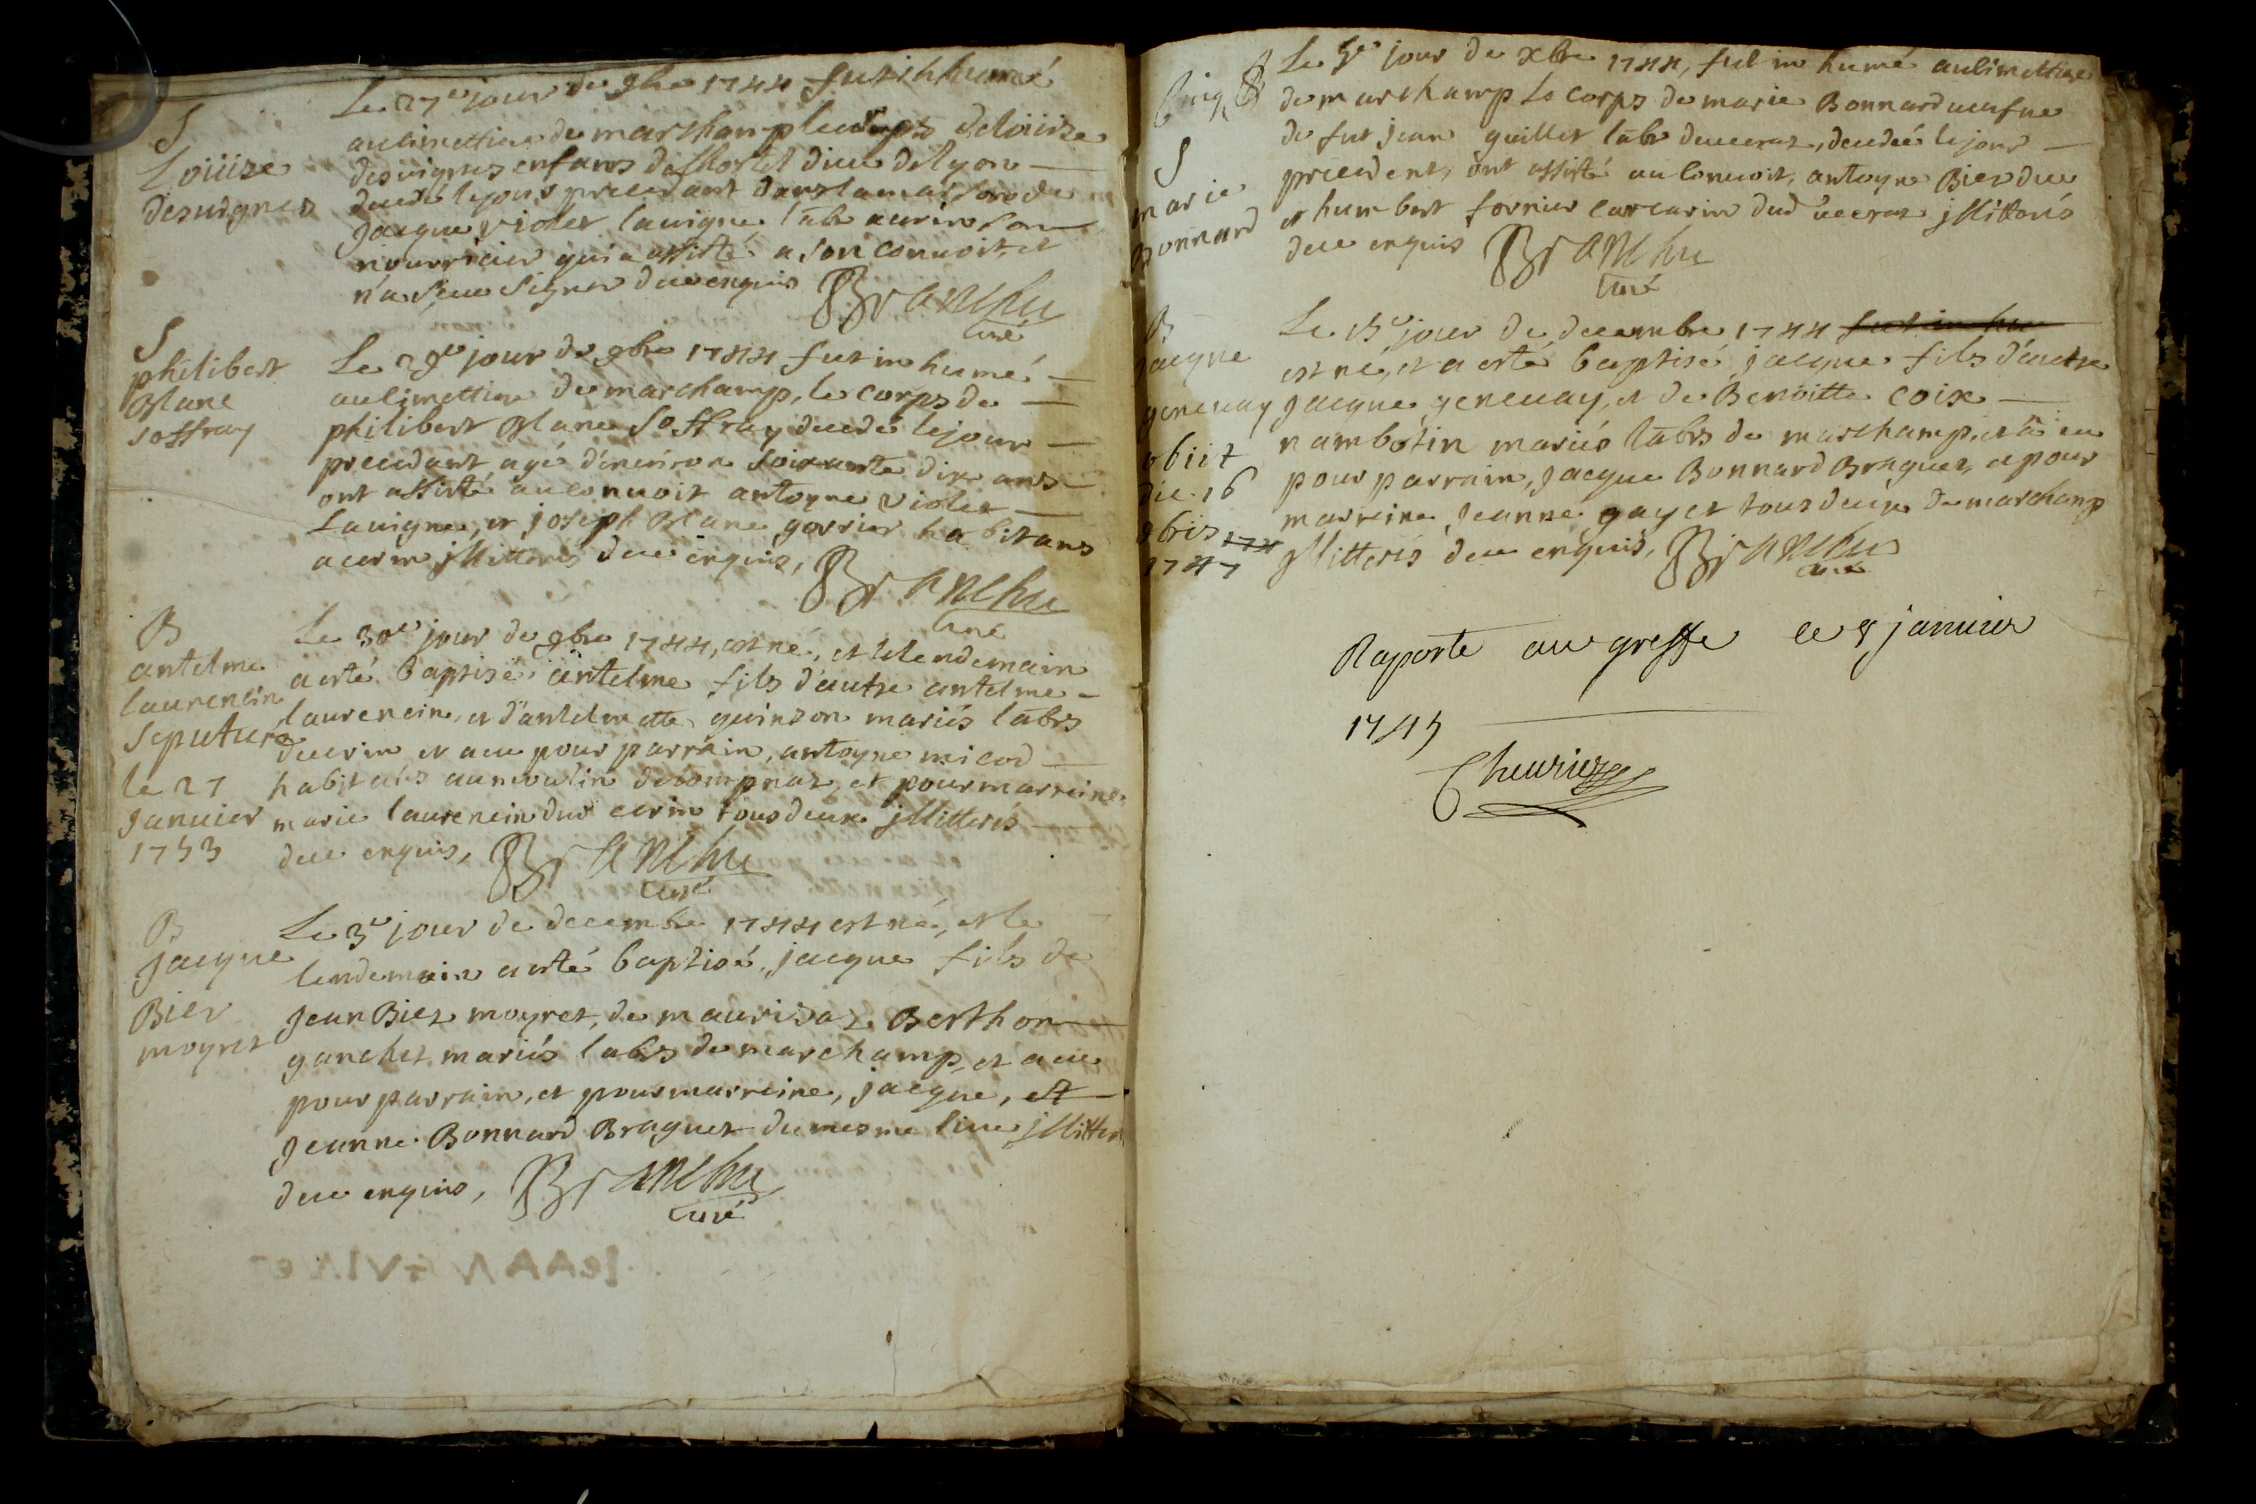 S
Loüize
desuignes
Le 27e jour de 9bre 1744 fut inhumé
au cimettiere de marchamp le corps de loüize
desuignes enfans de l'hostel dieu de lyon
decedé le jour precedant dans la maison de
Jacque violet lauigne labr a cerin son
nourricier qui a assisté a son conuoit, et
n'a sceu signer de ce enquis Branchu
curé
S
philibert
Blanc
soffray
Le 29e jour de 9bre 1744 fut inhumé
au cimettiere de marchamp, le corps de
philibert Blanc Soffray decedé le jour
precedant agé d'enuiron soixante dix ans
ont assisté au conuoit antoyne violet
Lauigne, et joseph Blanc gorrier habitans
a cerin jllitterés de ce enquis, Branchu
curé
B
antelme
laurencin
seputure
le 27
Januier
1753
Le 30e jour de 9bre 1744, est né, et le lendemain
a esté baptisé antelme fils d'autre antelme
laurencin, et d'antelmette quinson mariés labrs
de cerin et a eu pour parrain, antoyne micod
habitans au moulin de compnaz, et pour marreine
marie laurencin dud cerin tous deux jllitterés
de ce enquis, Branchu
curé
B
Jacque
Bier
moyret
Le 3e jour de decembre 1744 est né, et le
lendemain a esté baptisé, jacque fils de
Jean Biez moyret, de maurisaz Berthon
ganchet mariés labrs de marchamp, et a eu
pour parrain, et pour marreine, jacque, et
Jeanne Bonnard Braguet du mesme lieu jllitter
de ce enquis, Branchu
curé
S
marie
Bonnard
Le 5e jour de xbre 1744, fut inhumé au cimettiere
de marchamp le corps de marie Bonnard ueufue
de fut jean guillet labr de ceeraz, decedée le jour
precedent, ont assisté au conuoit, antoyne Bier duc
et humbert fornier carcarin dud ueeraz jllitterés
de ce enquis Branchu
curé
B
Jacque
geneuay
obiit
die 16
9bris 174
1747
Le 15e jour de decembre 1744 fut inhu
est né, et a esté baptisé jacque fils d'autre
Jacque geneuay, et de Benoitte coix
nambotin mariés labrs de marchamp, et a eu
pour parrain, jacque Bonnard Braguet, et pour
marreine, jeanne gayet tous deux de marchamp
jllitterés de ce enquis, Branchu
curé
Raporte au greffe ce 8 januier
1745
Cheurier